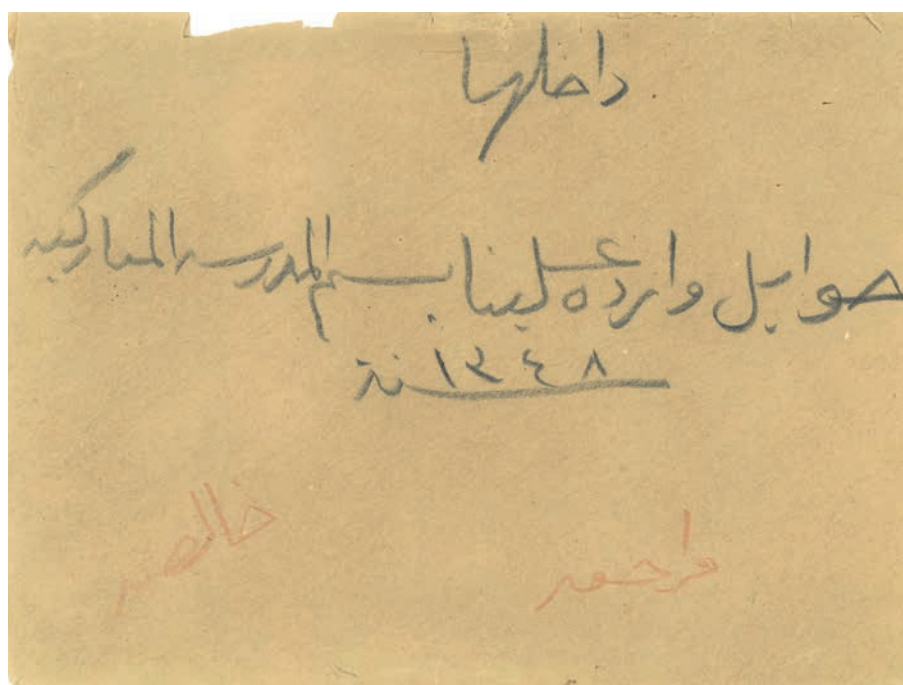 داخلها
حوايل وارده علينا باسم المدرسه المباركيه
سنة ١٣٤٨
خالصه